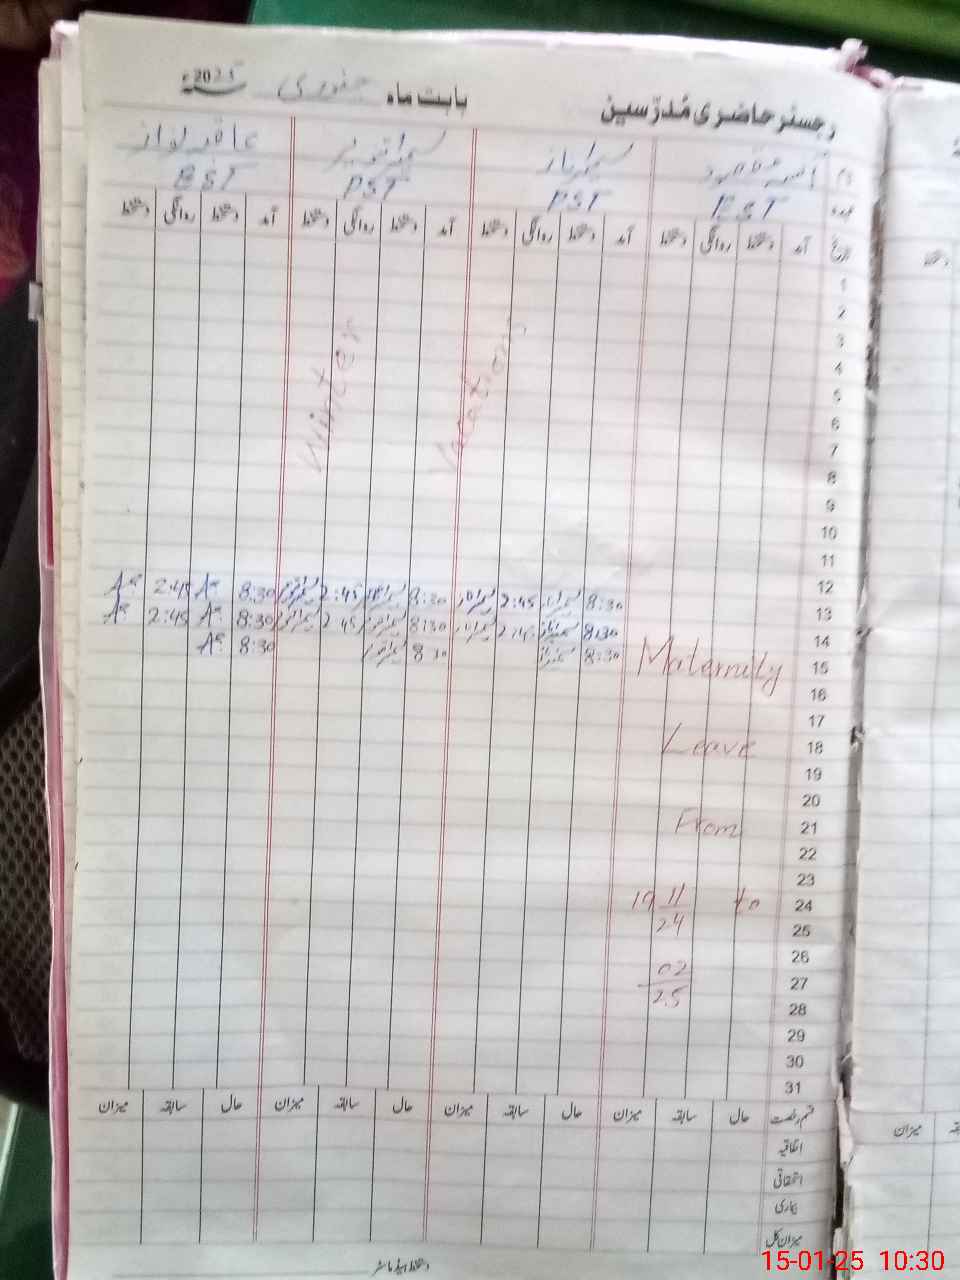 رجسٹر حاضری مُدرّسین بابت ماہ جنوری 2025ء
نام سمیرا ناز سمیرا تنویر
عہدہ EST PST PST EST
تاریخ آمد دستخط روانگی دستخط آمد دستخط روانگی دستخط آمد دستخط روانگی دستخط آمد دستخط روانگی دستخط
1
2
3
4
5
Winter Vacations
6
7
8
9
10
11
12 8:30 2:45 8:30 2:45 8:30 2:45
13 8:30 2:45 8:30 2:45 8:30 2:45
14 8:30 8:30 8:30
15 Maternity
16
17
18 Leave
19
20
21 From
22
23
24 19 11 to
25 24
26
27 02
28 25
29
30
31
قسم رخصت حال سابقہ میزان حال سابقہ میزان حال سابقہ میزان حال سابقہ میزان
اتفاقیہ
استحقاقی
بیماری
میزان کل
دستخط ہیڈ ماسٹر
سابقہ میزان
15-01-25 10:30